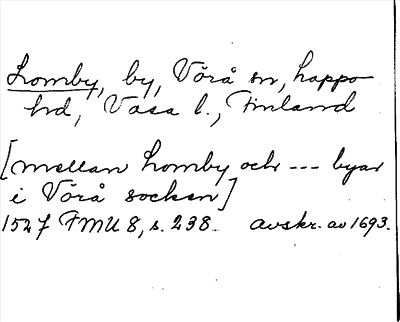 Lomby, by, Vörå sn, Lappo
hd, Vasa l., Finland
[mellan Lomby och --- byar
i Vörå socken]
1527 FMU 8, s. 238. avskr. av 1693.